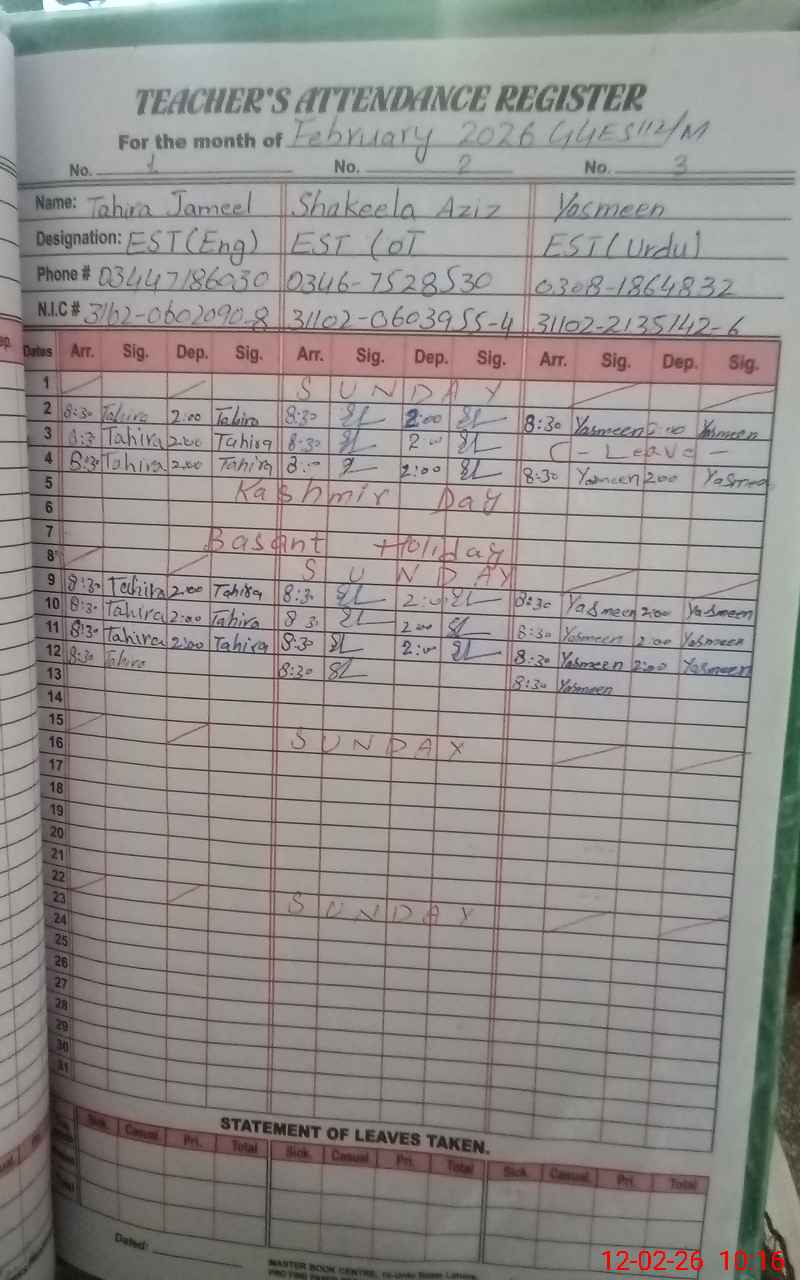 TEACHER'S ATTENDANCE REGISTER
For the month of February 2026 GGES 112/M
No. 1 No. 2 No. 3
Name: Tahira Jameel Shakeela Aziz Yasmeen
Designation: EST(Eng) EST (OT EST(Urdu)
Phone # 03447186030 0346-7528530 0308-1864832
N.I.C # 3162-0602090-8 31102-0603955-4 31102-2135142-6
Dates Arr. Sig. Dep. Sig. Arr. Sig. Dep. Sig. Arr. Sig. Dep. Sig.
1 SUNDAY
2 8:30 Tahira 2:00 Tahira 8:30 2:00 8:30 Yasmeen 2:00 Yasmeen
3 8:3 Tahira 2:00 Tahira 8:30 2:00 C - Leave -
4 8:30 Tahira 2:00 Tahira 8:00 2:00 8:30 Yasmeen 2:00 Yasmeen
5 Kashmir Day
6
7 Basant Holiday
8 SUNDAY
9 8:30 Tahira 2:00 Tahira 8:30 2:00 8:30 Yasmeen 2:00 Yasmeen
10 8:30 Tahira 2:00 Tahira 8:30 2:00 8:30 Yasmeen 2:00 Yasmeen
11 8:30 Tahira 2:00 Tahira 8:30 2:00 8:30 Yasmeen 2:00 Yasmeen
12 8:30 Tahira 8:30 8:30 Yasmeen
13
14
15 SUNDAY
16
17
18
19
20
21
22 SUNDAY
23
24
25
26
27
28
29
30
31
STATEMENT OF LEAVES TAKEN.
Sick. Casual Pri. Total Sick. Casual Pri. Total Sick. Casual. Pri. Total
Dated:
MASTER BOOK CENTRE,
12-02-26 10:16